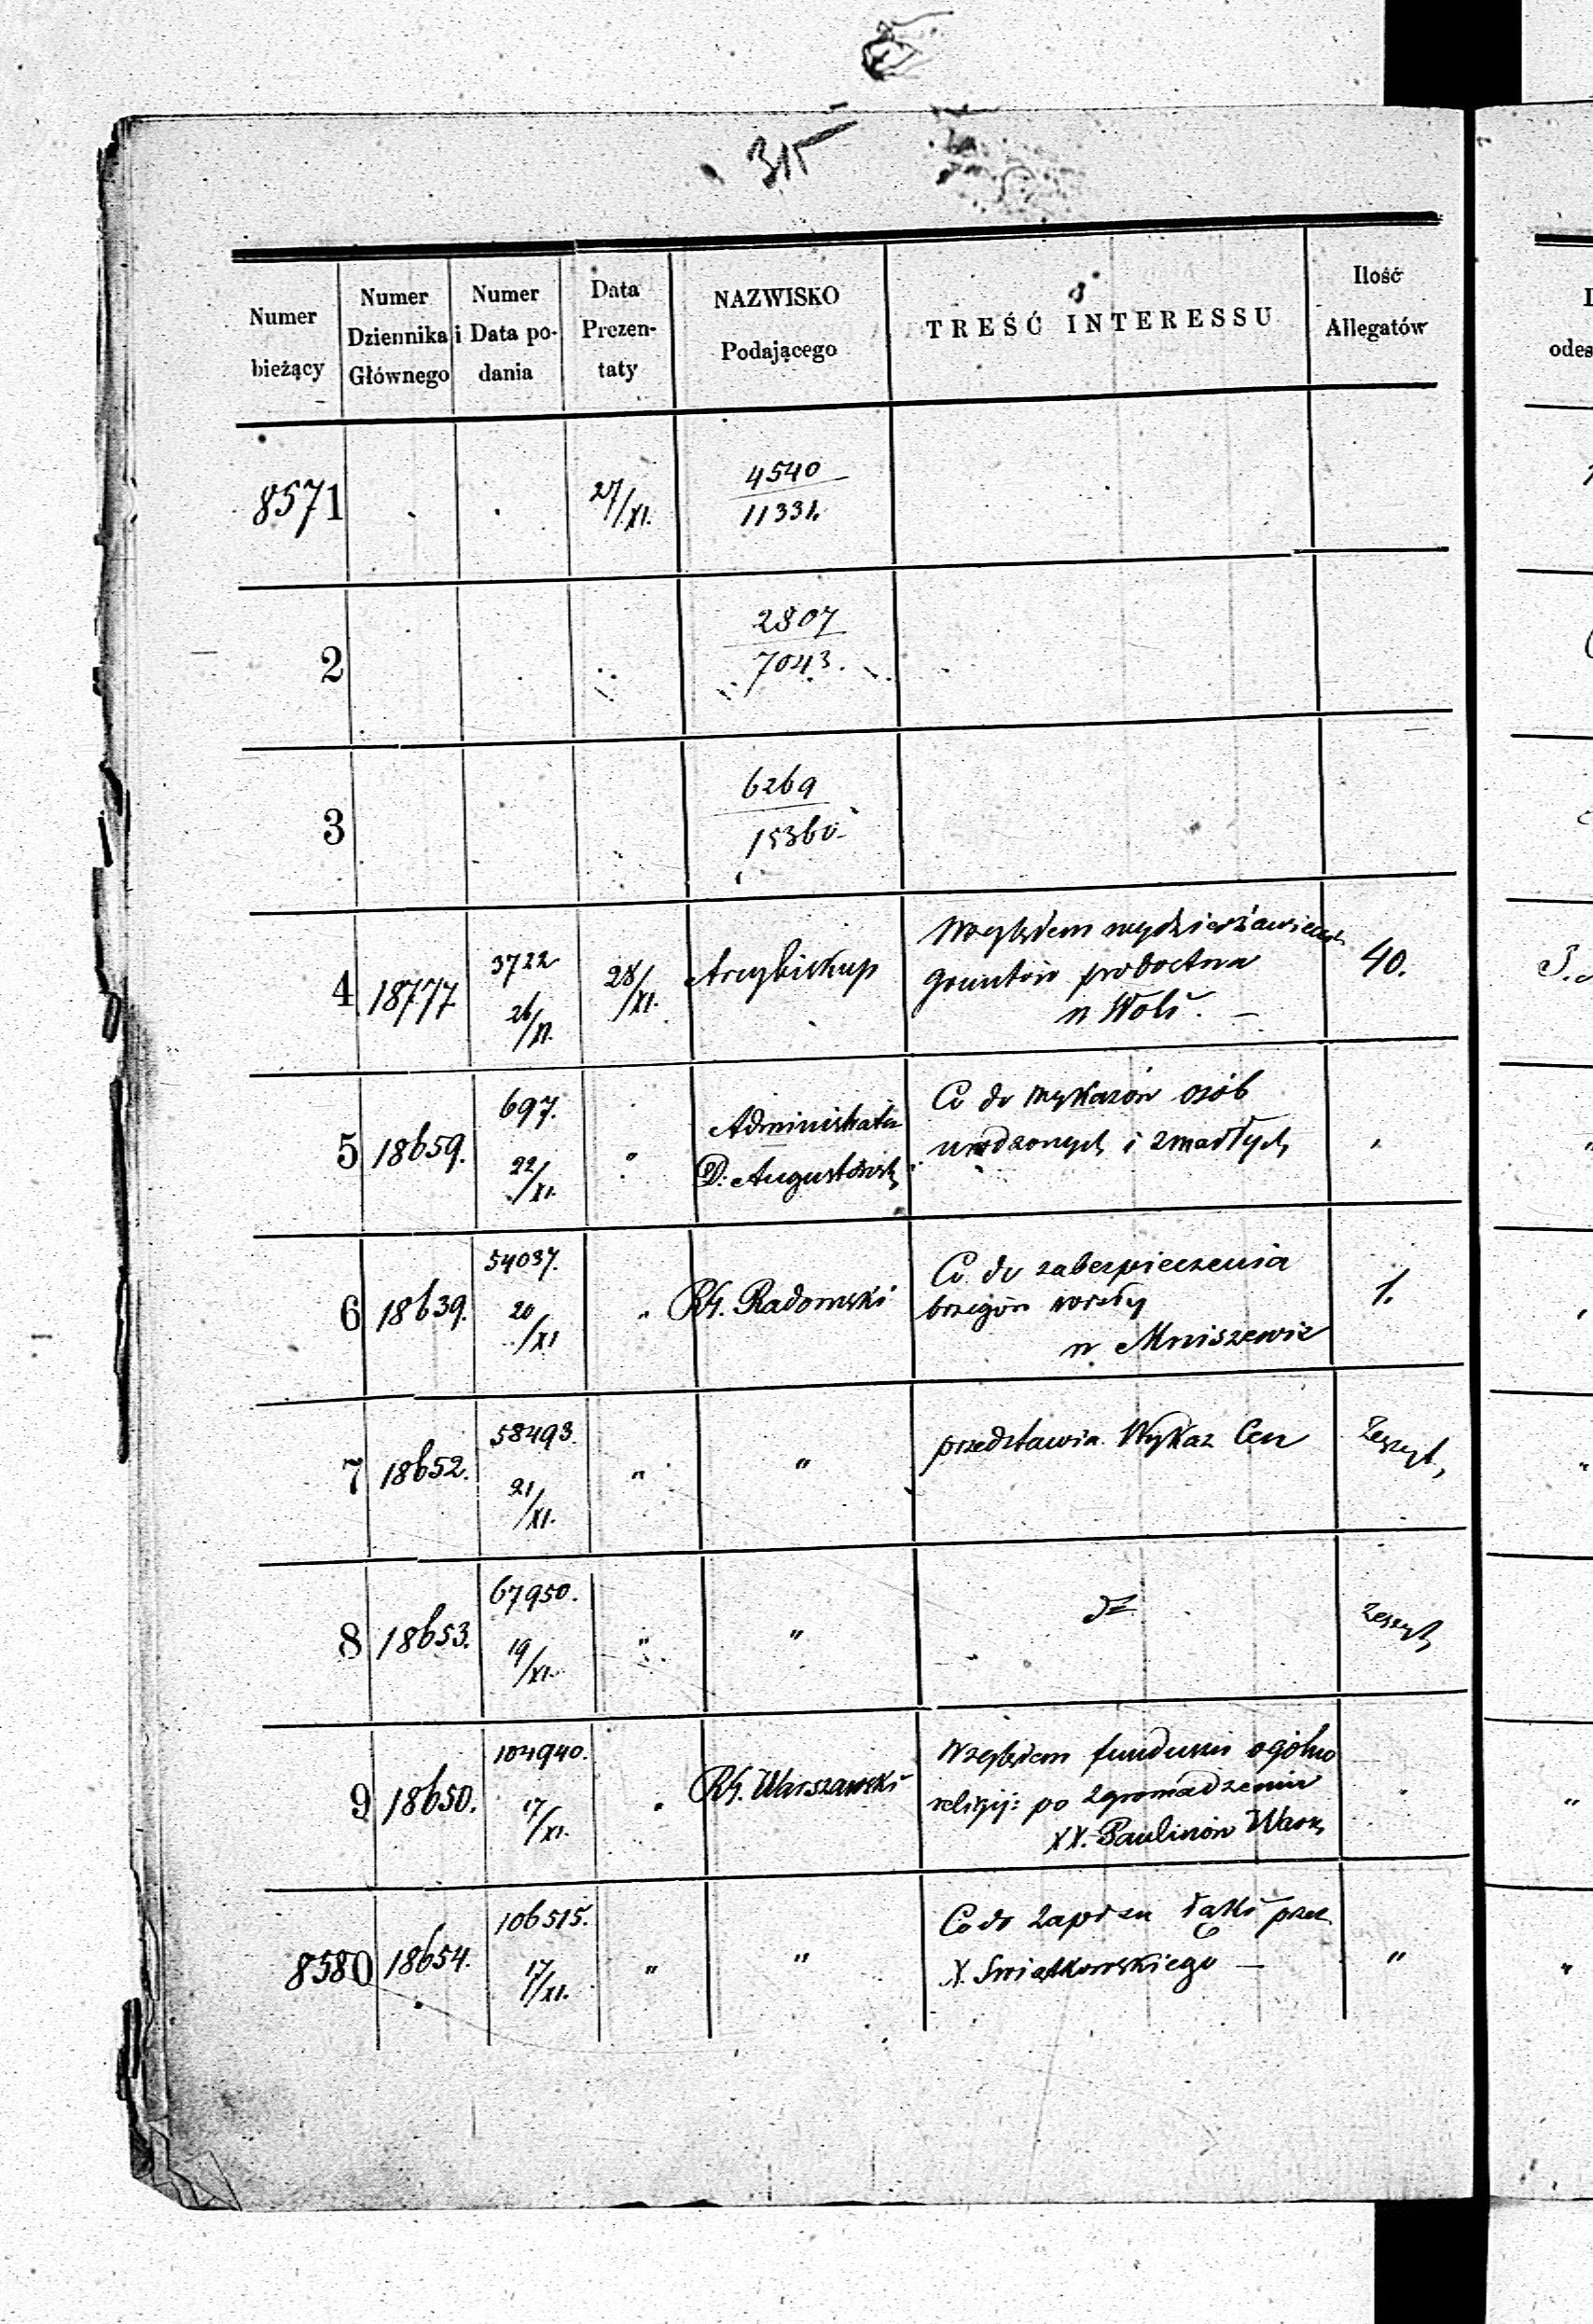 315
Numer bieżący
Numer Dziennika Głównego
Numer i Data podania
Data Prezentaty
NAZWISKO Podającego
TREŚĆ INTERESSU
Ilość Allegatów
odes
8571 27/XI. 4540
11331.
2 2807
7043.
3 6269
15360.
4 18777. 3722 26/XI. 28/XI. Arcybiskup Względem wydzierżawienia 40.
gruntów probostwa
w Woli. —
5 18659. 697. 22/XI. " Administrator Co do wykazów osób
D. Augustowsk. urodzonych i zmarłych
6 18639. 54037. 20/XI " RG. Radomski Co do zabezpieczenia 1.
brzegów Wisły
w Mniszewie
7 18652. 58493. 21/XI. " " przedstawia Wykaz Cen Zeszyt,
8 18653. 67950. 19/XI. " " do Zeszyt,
9 18650. 104940. 17/XI. " RG. Warszawski Względem funduszu ogólno
religij: po Zgromadzeniu
XX. Paulinów Warsz,
8580 18654. 106515. 17/XI. " " Co do Zapisu łąki przez "
X. Swiątkowskiego —